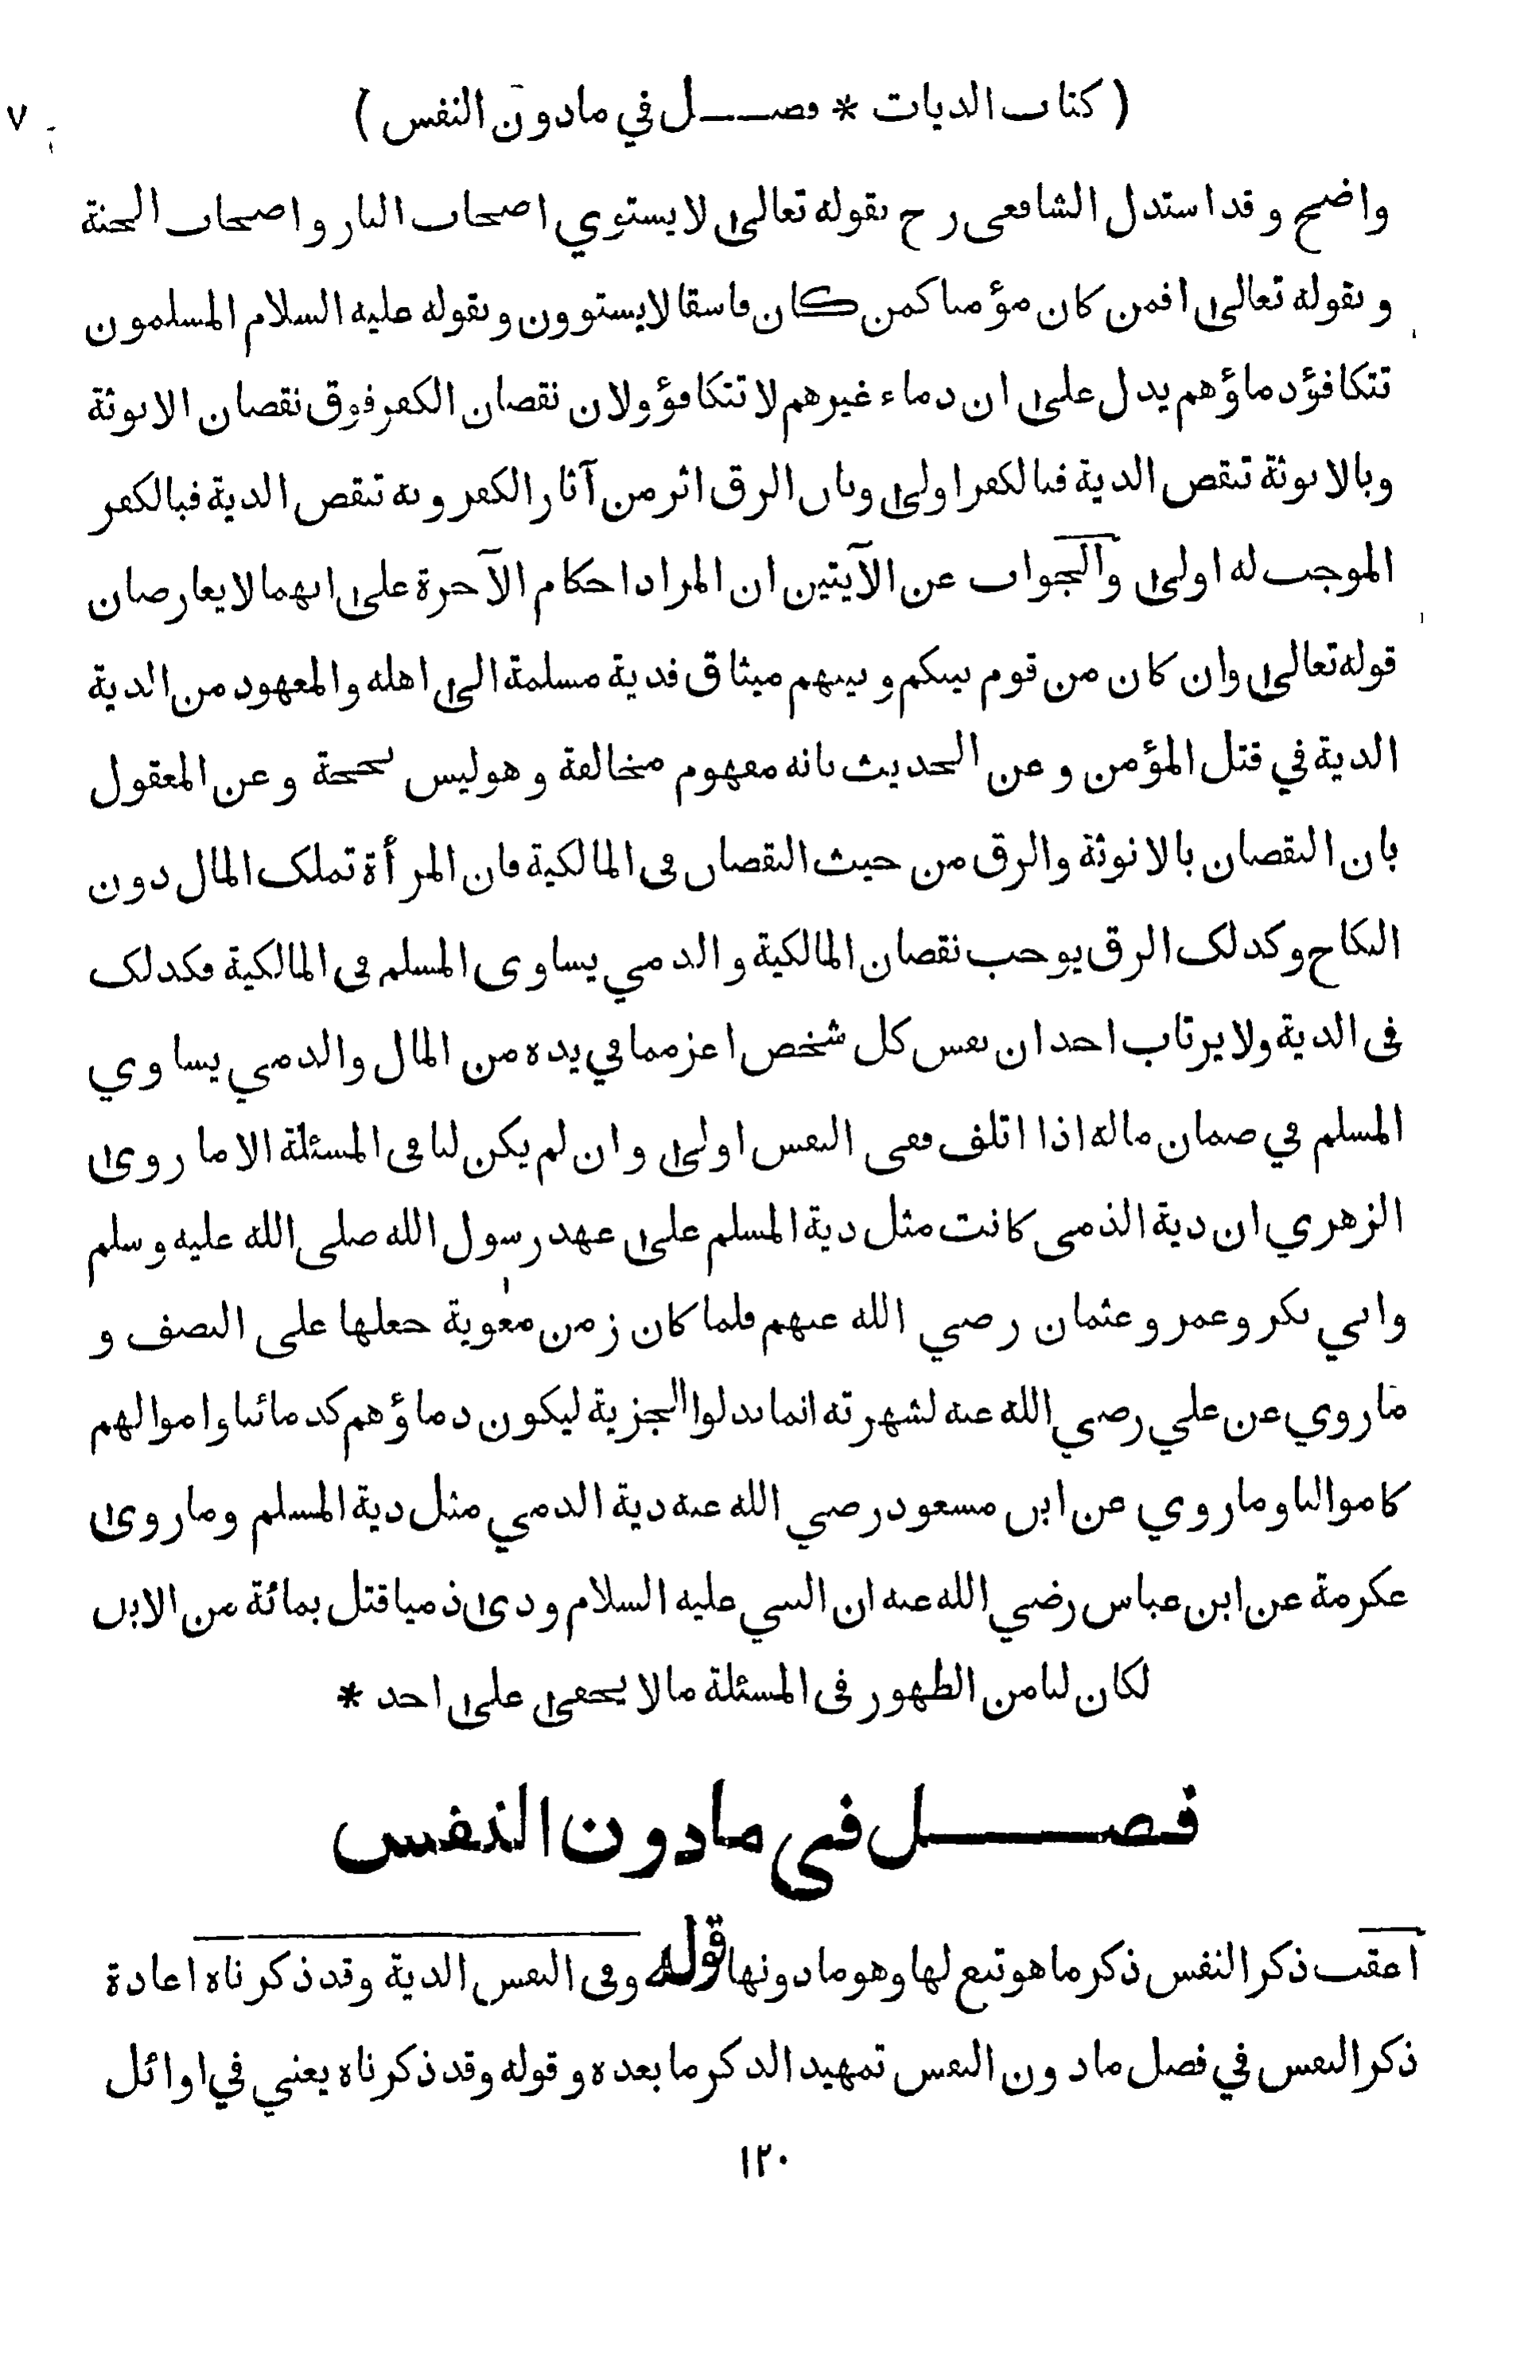 ( كتاب الديات * فصل في مادون النفس ) ٧
واضح وقد استدل الشافعي رح بقوله تعالىٰ لا يستوي اصحاب النار واصحاب الجنة
وبقوله تعالىٰ افمن كان مؤمنا كمن كان فاسقا لا يستوون وبقوله عليه السلام المسلمون
تتكافؤ دماؤهم يدل علىٰ ان دماء غيرهم لا تتكافؤ ولان نقصان الكفر فوق نقصان الانوثة
وبالانوثة تنقص الدية فبالكفر اولىٰ وبان الرق اثر من آثار الكفر وبه تنقص الدية فبالكفر
الموجب له اولىٰ والجواب عن الآيتين ان المراد احكام الآخرة علىٰ انهما لا يعارضان
قوله تعالىٰ وان كان من قوم بينكم وبينهم ميثاق فدية مسلمة الىٰ اهله والمعهود من الدية
الدية في قتل المؤمن وعن الحديث بانه مفهوم مخالفة وهو ليس بحجة وعن المعقول
بان النقصان بالانوثة والرق من حيث النقصان في المالكية فان المرأة تملك المال دون
النكاح وكذلك الرق يوجب نقصان المالكية والذمي يساوي المسلم في المالكية فكذلك
في الدية ولا يرتاب احد ان نفس كل شخص اعز مما في يده من المال والذمي يساوي
المسلم في ضمان ماله اذا اتلف ففي النفس اولىٰ وان لم يكن لنا في المسئلة الا ما روىٰ
الزهري ان دية الذمي كانت مثل دية المسلم علىٰ عهد رسول الله صلى الله عليه وسلم
وابي بكر وعمر وعثمان رضي الله عنهم فلما كان زمن معٰوية جعلها على النصف و
ما روي عن علي رضي الله عنه لشهرته انما بذلوا الجزية ليكون دماؤهم كدمائنا واموالهم
كاموالنا وما روي عن ابن مسعود رضي الله عنه دية الذمي مثل دية المسلم وما روىٰ
عكرمة عن ابن عباس رضي الله عنه ان النبي عليه السلام ودىٰ ذميا قتل بمائة من الابل
لكان لنا من الظهور في المسئلة مالا يخفىٰ علىٰ احد *
فصل في مادون النفس
اعقب ذكر النفس ذكر ما هو تبع لها وهو مادونها قوله وفي النفس الدية وقد ذكرناه اعادة
ذكر النفس في فصل مادون النفس تمهيد الذكر ما بعده وقوله وقد ذكرناه يعني في اوائل
١٢٠